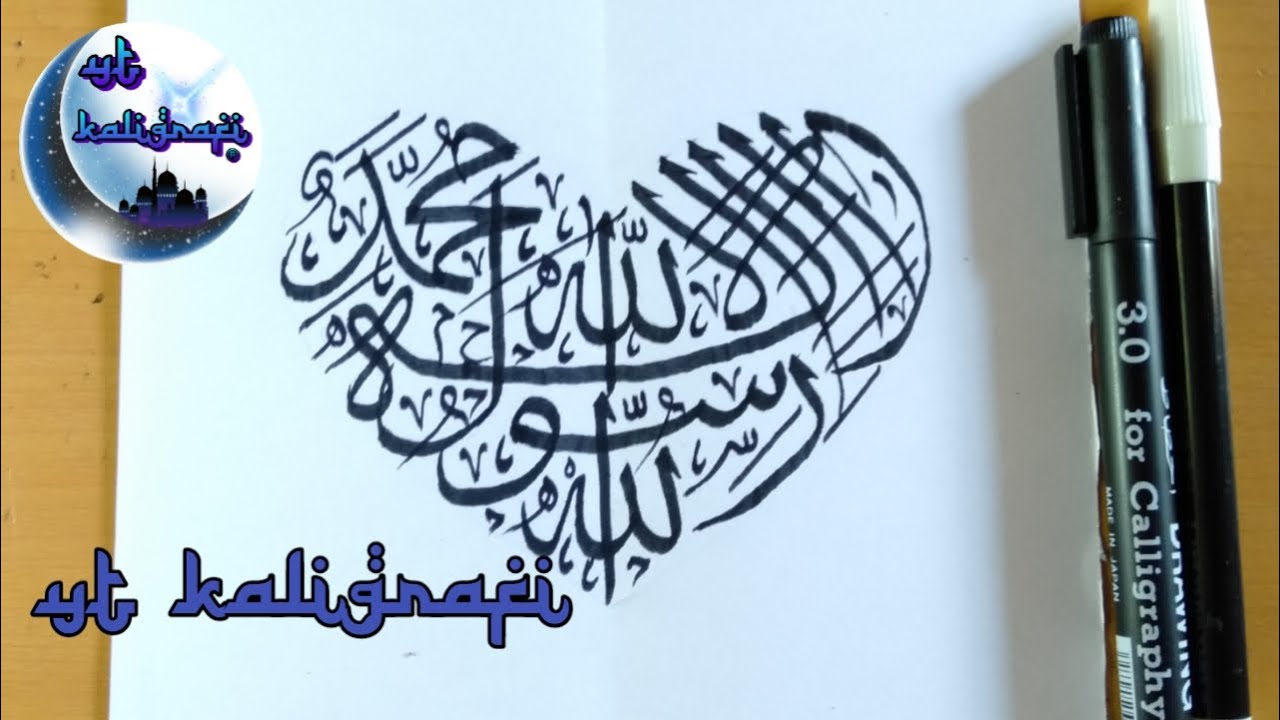 yt
kaligrafi
لا إله إلا الله
محمد رسول الله
yt kaligrafi
3.0 for Calligraphy
MADE IN JAPAN
DRAWING